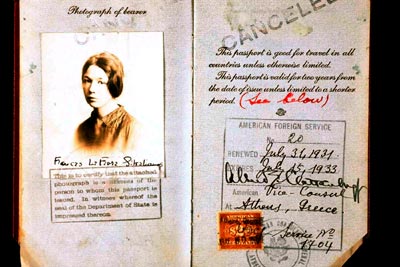 Photograph of bearer
This is to certify that the attached
photograph is a likeness of the
person to whom this passport is
issued. In witness whereof the
seal of the Department of State is
impressed thereon.
CANCELED
This passport is good for travel in all
countries unless otherwise limited.
This passport is valid for two years from
the date of issue unless limited to a shorter
period. (See below)
AMERICAN FOREIGN SERVICE
No. 20
RENEWED July 1931
1933
American Vice-Consul
At Athens, Greece
Service No
1704